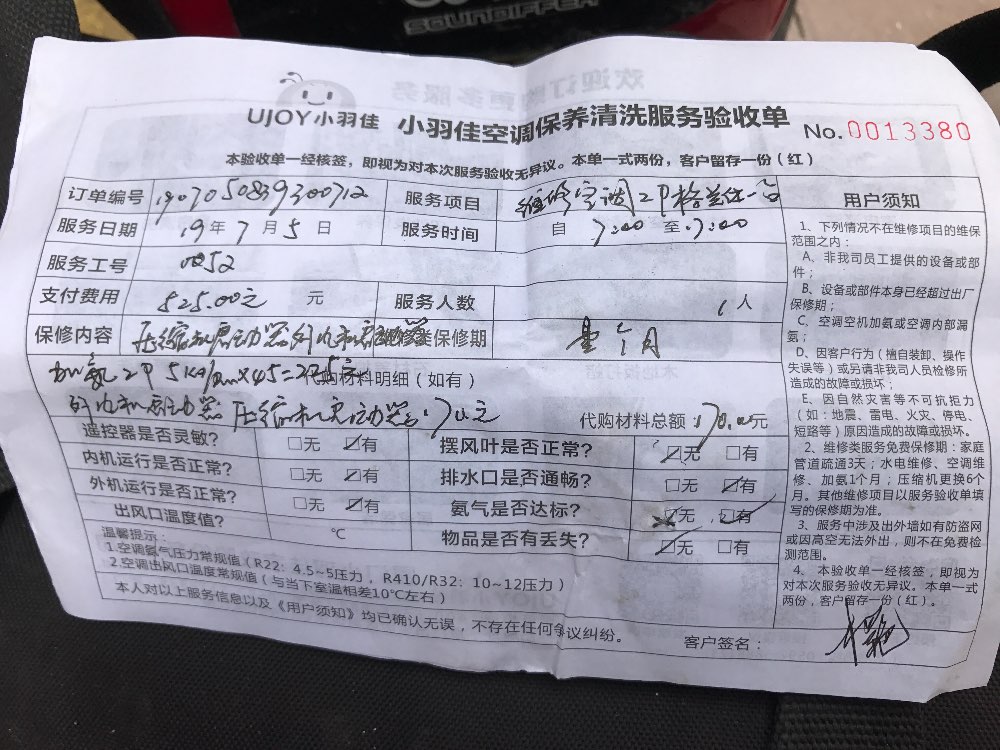 SOUNDIFFER
UJOY小羽佳 小羽佳空调保养清洗服务验收单 No.0013380
本验收单一经核签，即视为对本次服务验收无异议。本单一式两份，客户留存一份（红）
订单编号 服务项目 维修空调2P格兰仕一台
服务日期 19年7月5日 服务时间 自 至
服务工号 0052
支付费用 525.00元 元 服务人数 1人
保修内容 维修类保修期 壹个月
代购材料明细（如有）
代购材料总额：170.00元
遥控器是否灵敏？ □无 ☑有 摆风叶是否正常？ ☑无 □有
内机运行是否正常？ □无 ☑有 排水口是否通畅？ □无 ☑有
外机运行是否正常？ □无 ☑有 氨气是否达标？ 无 ☑有
出风口温度值？ ℃ 物品是否有丢失？ ☑无 □有
温馨提示：
1.空调氨气压力常规值（R22：4.5~5压力，R410/R32：10~12压力）
2.空调出风口温度常规值（与当下室温相差10℃左右）
本人对以上服务信息以及《用户须知》均已确认无误，不存在任何争议纠纷。
客户签名：
用户须知
1、下列情况不在维修项目的维保
范围之内：
A、非我司员工提供的设备或部
件；
B、设备或部件本身已经超过出厂
保修期；
C、空调空机加氨或空调内部漏
氨；
D、因客户行为（擅自装卸、操作
失误等）或另请非我司人员检修所
造成的故障或损坏；
E、因自然灾害等不可抗拒力
（如：地震、雷电、火灾、停电、
短路等）原因造成的故障或损坏。
2、维修类服务免费保修期：家庭
管道疏通3天；水电维修、空调维
修、加氨1个月；压缩机更换6个
月。其他维修项目以服务验收单填
写的保修期为准。
3、服务中涉及出外墙如有防盗网
或因高空无法外出，则不在免费检
测范围。
4、本验收单一经核签，即视为
对本次服务验收无异议。本单一式
两份，客户留存一份（红）。